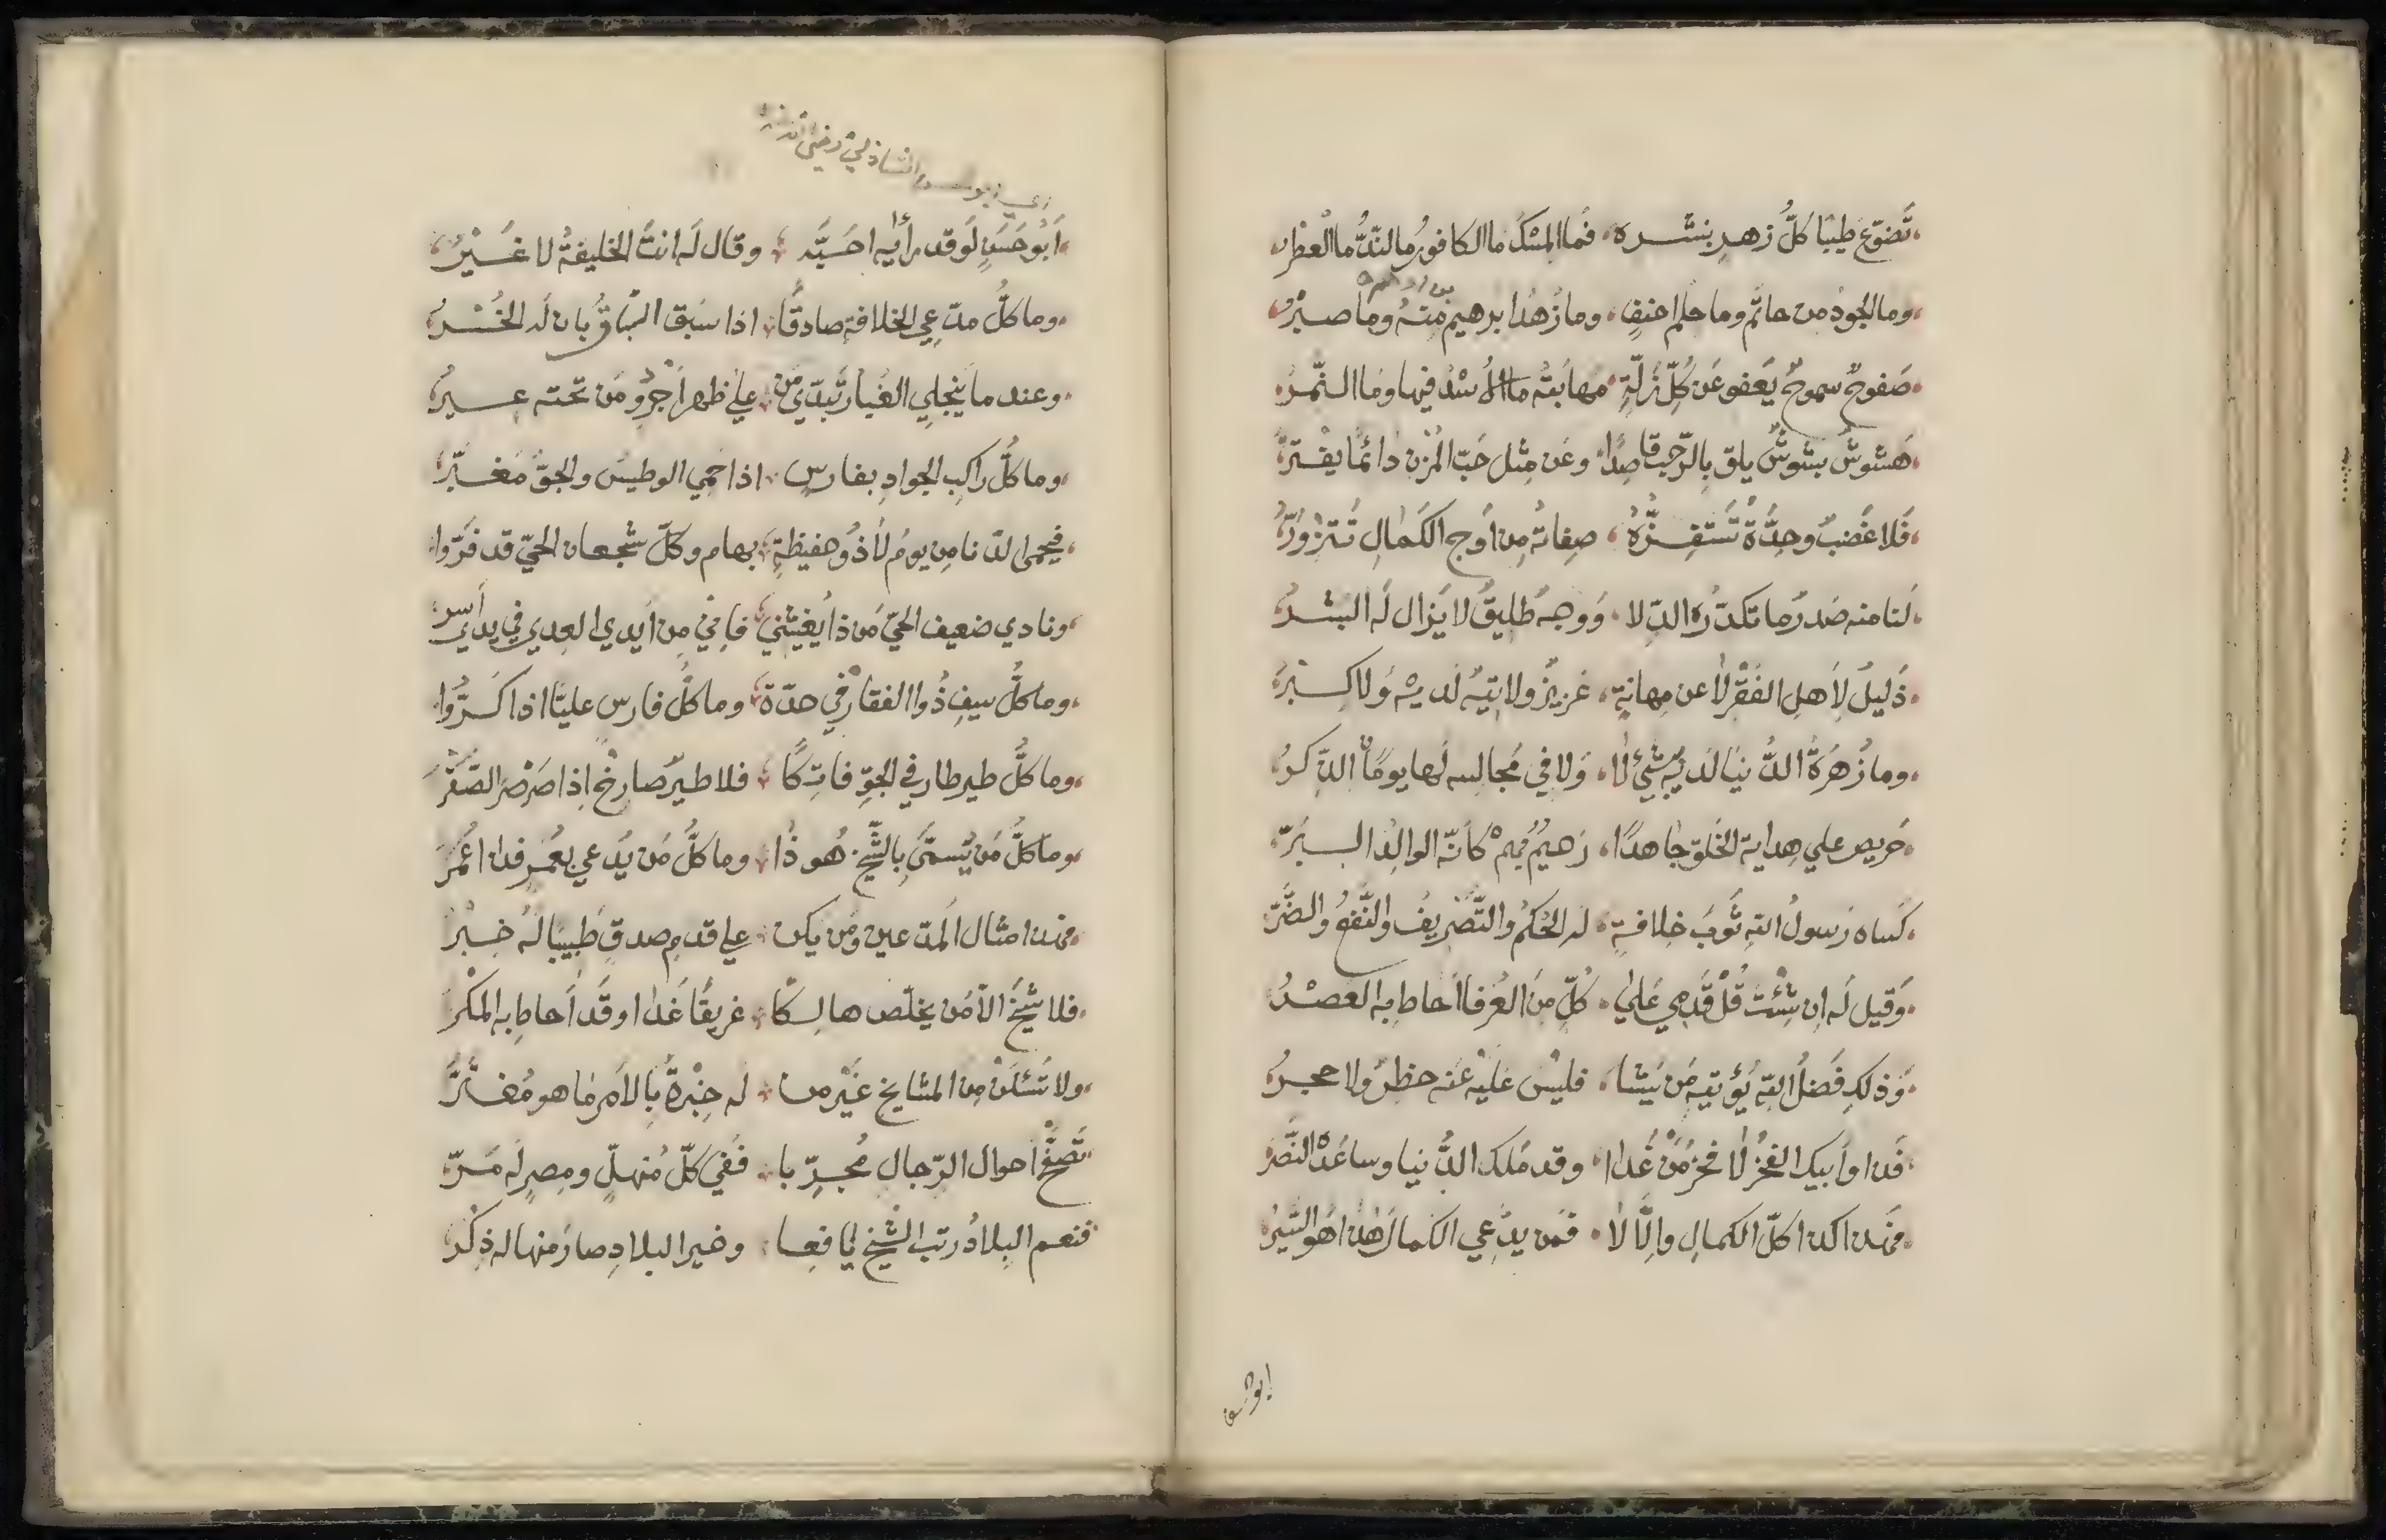 تَضَوَّعَ طِيبًا كُلُّ زهرٍ بنشره فما المسكُ ما الكافورُ ما النَّدُّ ما العِطْرُ
بن ادهم
وما الجودُ من حاتم وما حلم احنفٍ وما زُهدُ ابرهيم منهُ وما صبرُ
صَفوحٌ سموحٌ يَعفو عَن كُلِّ زَلَّةٍ مهابتُه ما الأُسْدُ فيها وما النّمرُ
هَشوشٌ بشوشٌ يلق بِالرّحب قاصِدًا وعَن مِثل حَبّ المُزن دائمًا يفتَرُّ
فَلا غَضبٌ وحِدَّةٌ تَستَفِزُّهُ صِفاتُه مِن اَوج الكَمالِ تَتزوّرُ
لَنا منه صَدرٌ ما تكدّرُه الدِّلا وَوجهٌ طليقٌ لا يَزال لَه البشرُ
ذَليلٌ لِأَهلِ الفَقْرِ لا عن مهانةٍ عزيزٌ ولا تيهٌ لديه وَلا كِبْرُ
وما زَهرَةُ الدُّنيا لديه بشيءٍ لا وَلا في مُجالسه لَها يومًا الذّكرُ
حَريص على هِداية الخَلق جاهدًا رَحيمٌ بهم كأنّه الوالِدُ البَرُّ
كَساه رَسولُ الله ثَوبَ خِلافةٍ له الحُكمُ والتَّصريفُ والنَّفعُ والضَّرُّ
وَقيل لَه اِن شِئْتَ قُلْ قَدَمي عَلى كُلٍّ مِن العُرفا احاط به العصْرُ
وَذلك فَضلُ الله يُؤتيه مَن يَشا فليْسَ عَليْه عَنه حظرٌ ولا حجرُ
فَذا وأَبيك الفَخرُ لا فخرُ مَن غَدا وقد مَلك الدُّنيا وساعَدَهُ النَّصرُ
فهذا كذا كلّ الكمالِ وإلّا لا فمَن يدّعي الكمالَ هٰذا هو السّيرُ
ابو حسن
الشاذلي رضي الله عنه
أَبو حَسَنٍ لَو قد رأٰه احَبَّه وقال لَه انتَ الخليفةُ لا غَيْرُ
وما كلُّ مدّعي الخلافةِ صادقًا اذا سَبق السّباقُ بان لَه الخُسْرُ
وعند ما ينجلي الغُبار تَبدّى مَن على ظهر اَجْرَدٍ ومَن تحته عيرُ
وما كلُّ راكبِ الجوادِ بفارسٍ اذا حَمي الوطيسُ والجوُّ مغبَرُّ
فيحمى لدنا مِن يومٍ لا ذُو حفيظةٍ بهام وكلّ شجعان الحيّ قد فَرّوا
ونادى ضعيف الحيّ مَن ذا يُغيثني فإنّي مِن أَيدي العِدى في يدي أَسْرُ
وما كلُّ سيفٍ ذُو الفقار في حدّه وما كلُّ فارس عليًّا اذا كَرّوا
وما كلُّ طير طار في الجوّ فاتِكًا فلا طيرٌ صارخٌ اذا صَرْصَرَ الصَّقرُ
وما كلُّ مَن يُسمّى بالشّيخ هُو ذا وما كلُّ مَن يُدعى بعُمر فذا عُمَرُ
فهذا مثال المدّعين ومَن يكن على قدم صدقٍ طَبيبًا لَه خُبْرُ
فلا شَيخَ الّا مَن يخلّص هالِكًا غريقًا غَدا وقد أَحاط به المَكرُ
ولا تَسئَلَنْ مِن المشايخ غَيْر من له خِبْرةٌ بالأمر ما هو مُغتَرُّ
تَصَفّحْ احوال الرّجال مُجرِّبا فَفي كلّ مُنهلٍّ ومِصرٍ لَه مَرُّ
فنعم البِلادُ رتب الشّيخ يافعا وخير البلادِ صارَ منها له ذِكْرُ